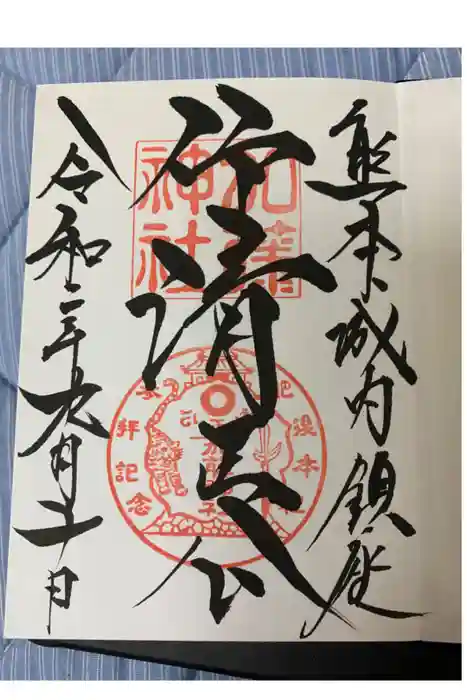 熊本城内鎮座
仰清正公
令和二年九月十一日
加藤
神社
参拝記念